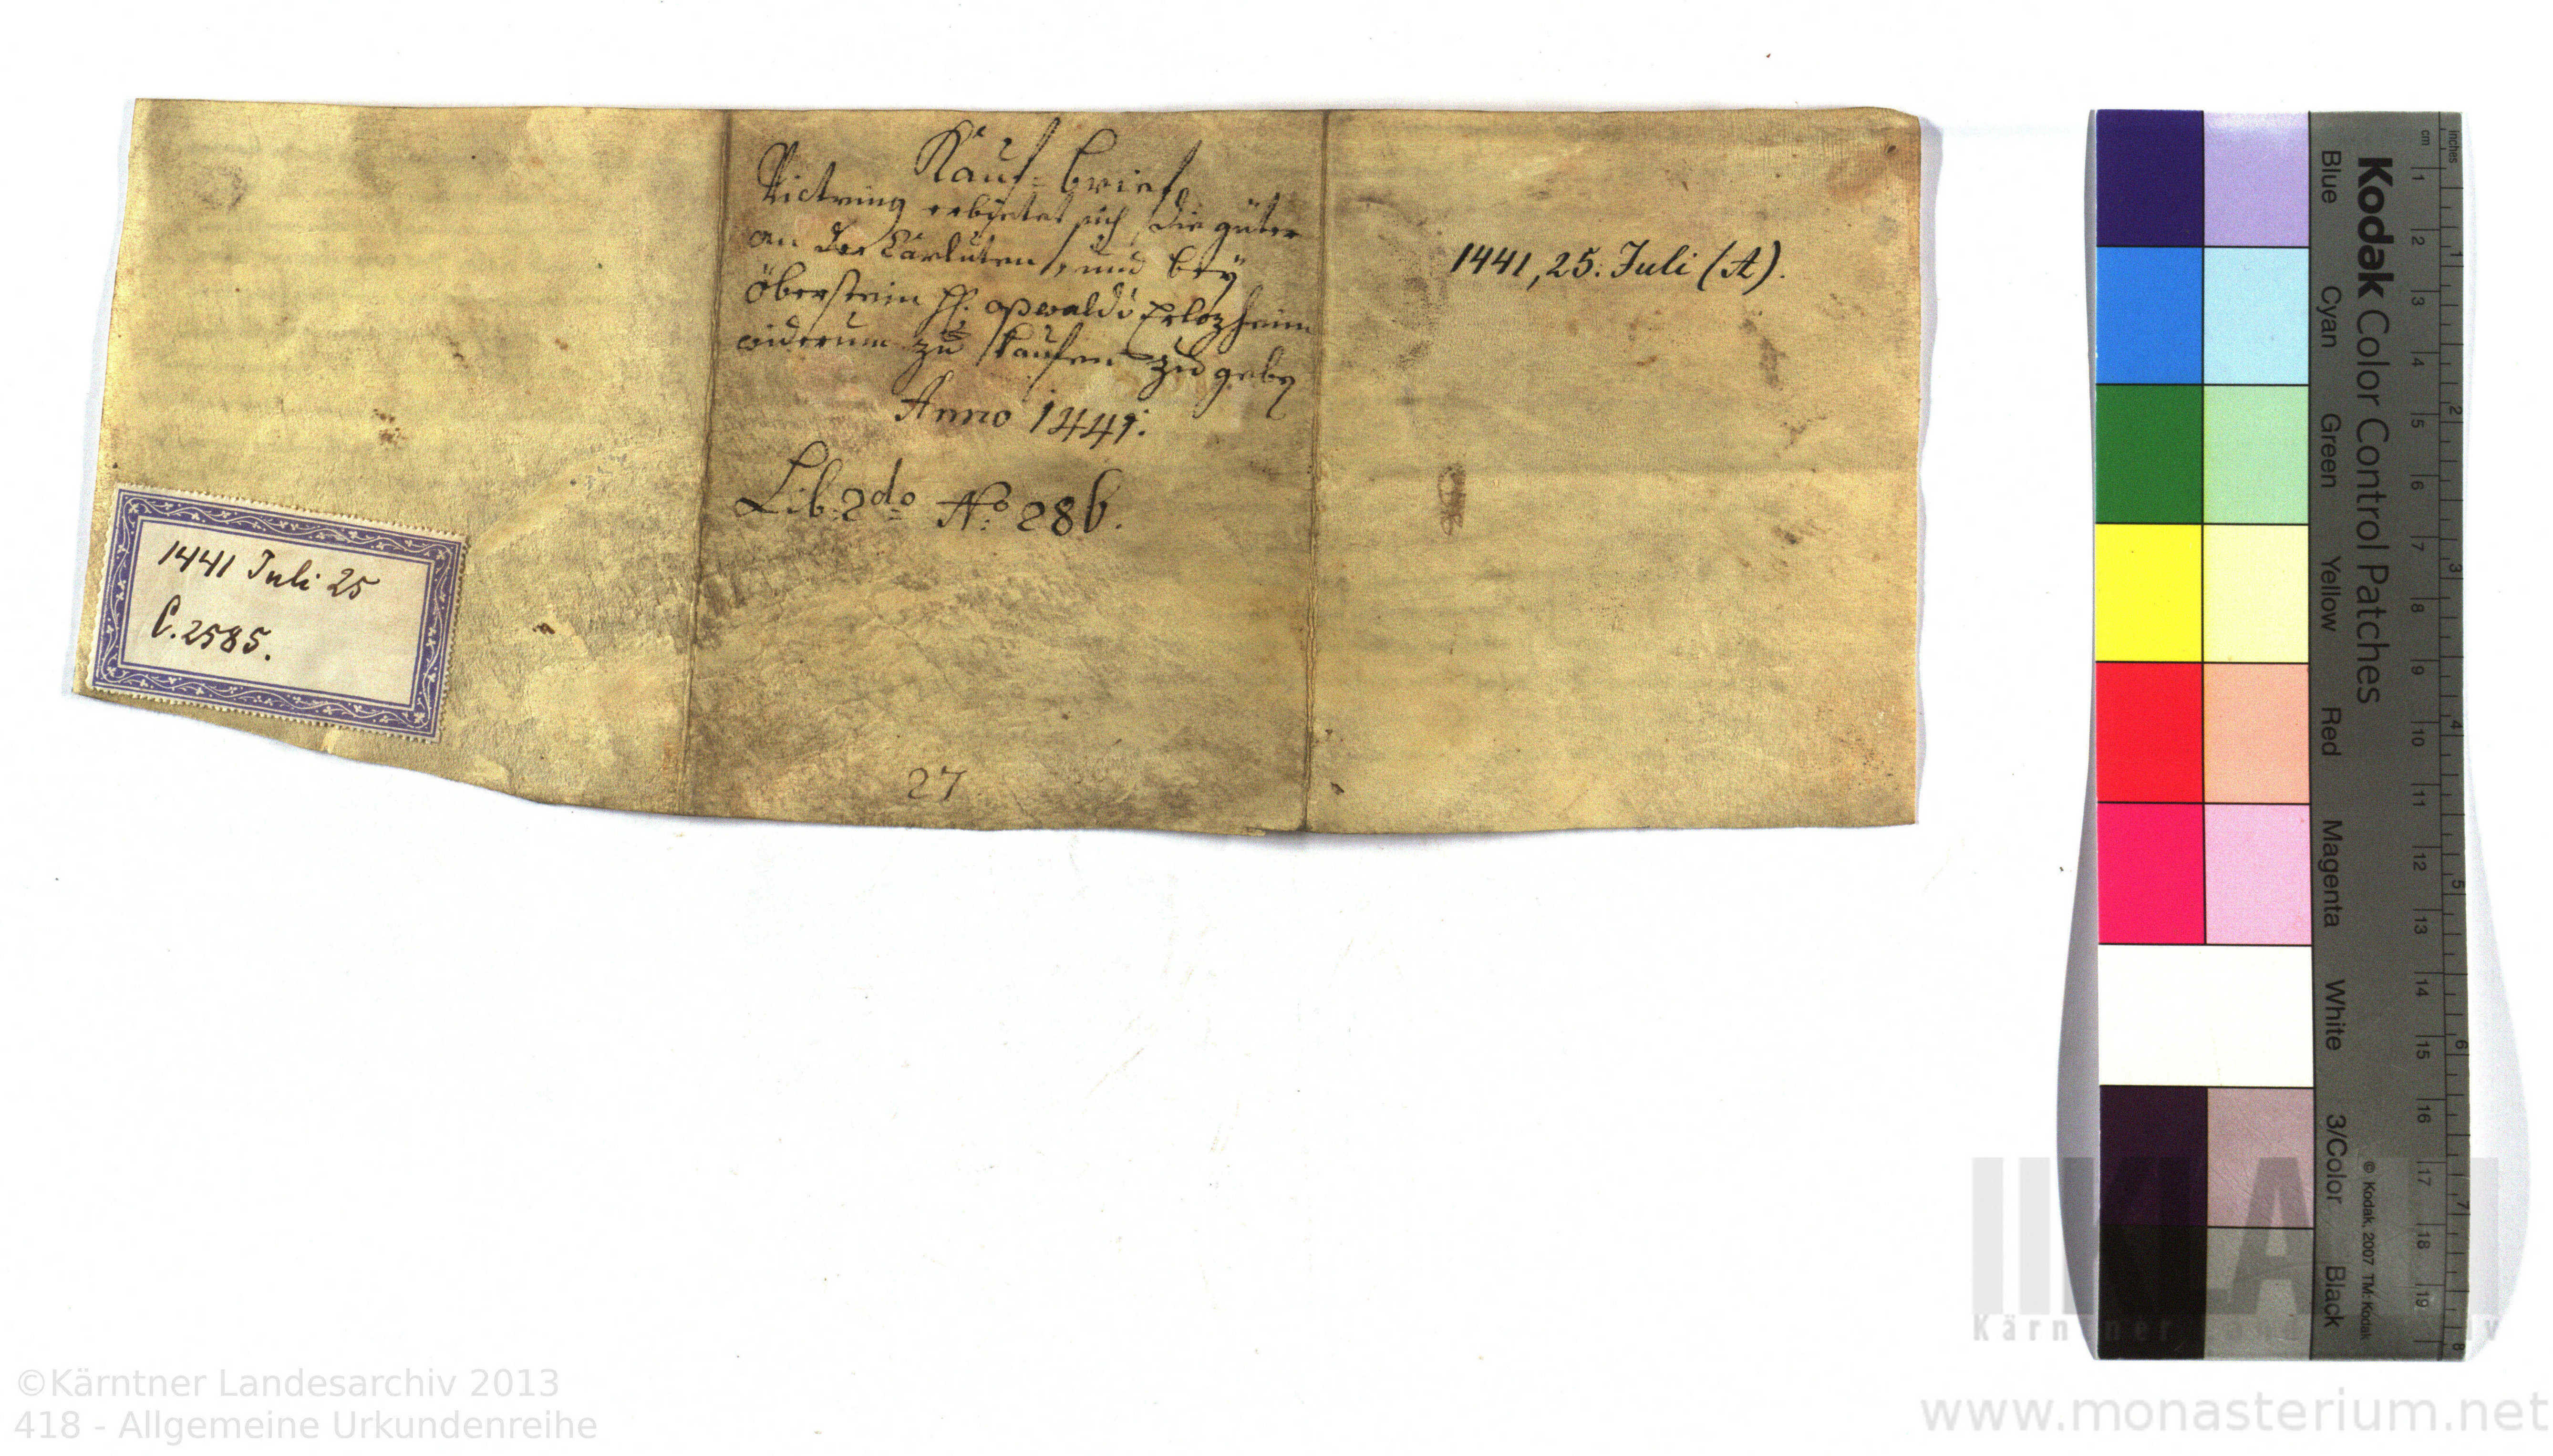 Kauf=brief
Victring erbietet sich die güter
an der und bey
Oberstein H. oswaldi
widerum zu kaufen zu geben
Anno 1441.
Lib. 2do No. 286.
27
1441, 25. Juli (A).
1441 Juli 25
C. 2585.
Kodak Color Control Patches
Blue Cyan Green Yellow Red Magenta White 3/Color Black
© Kodak, 2007 TM: Kodak
cm 1 2 3 4 5 6 7 8 9 10 11 12 13 14 15 16 17 18 19
inches 1 2 3 4 5 6 7 8
KLA
©Kärntner Landesarchiv 2013
418 - Allgemeine Urkundenreihe
www.monasterium.net